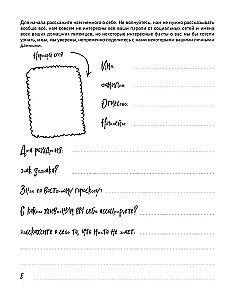 Для начала расскажите нам немного о себе. Не волнуйтесь, нам не нужно рассказывать
вообще всё, нам совсем не интересны все ваши пароли от социальных сетей и имена
всех ваших домашних питомцев, но некоторые интересные факты о вас мы бы хотели
узнать, и вы, мы уверены, непременно поделитесь с нами некоторыми вашими личными
данными.
Нарисуй себя
Имя:
Фамилия:
Отчество:
Никнейм:
Дата рождения:
Знак зодиака?
Знак по восточному гороскопу:
С каким животным вы себя ассоциируете?
Расскажите о себе то, что никто не знает.
8